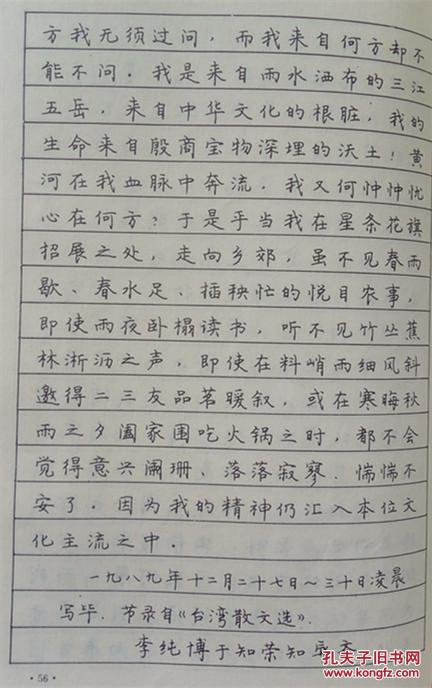 方我无须过问，而我来自何方却不
能不问．我是来自雨水洒布的三江
五岳．来自中华文化的根脏，我的
生命来自殷商宝物深埋的沃土！黄
河在我血脉中奔流．我又何忡忡忧
心在何方？于是乎当我在星条花旗
招展之处，走向乡郊，虽不见春雨
歇、春水足、插秧忙的悦目农事，
即使雨夜卧榻读书，听不见竹丛蕉
林淅沥之声，即使在料峭雨细风斜
邀得二三友品茗暖叙，或在寒晦秋
雨之夕阖家围吃火锅之时，都不会
觉得意兴阑珊、落落寂寥．惴惴不
安了．因为我的精神仍汇入本位文
化主流之中．
一九八九年十二月二十七日～三十日凌晨
写毕．节录自《台湾散文选》．
李纯博于知荣知辱斋
·56·
孔夫子旧书网
www.kongfz.com